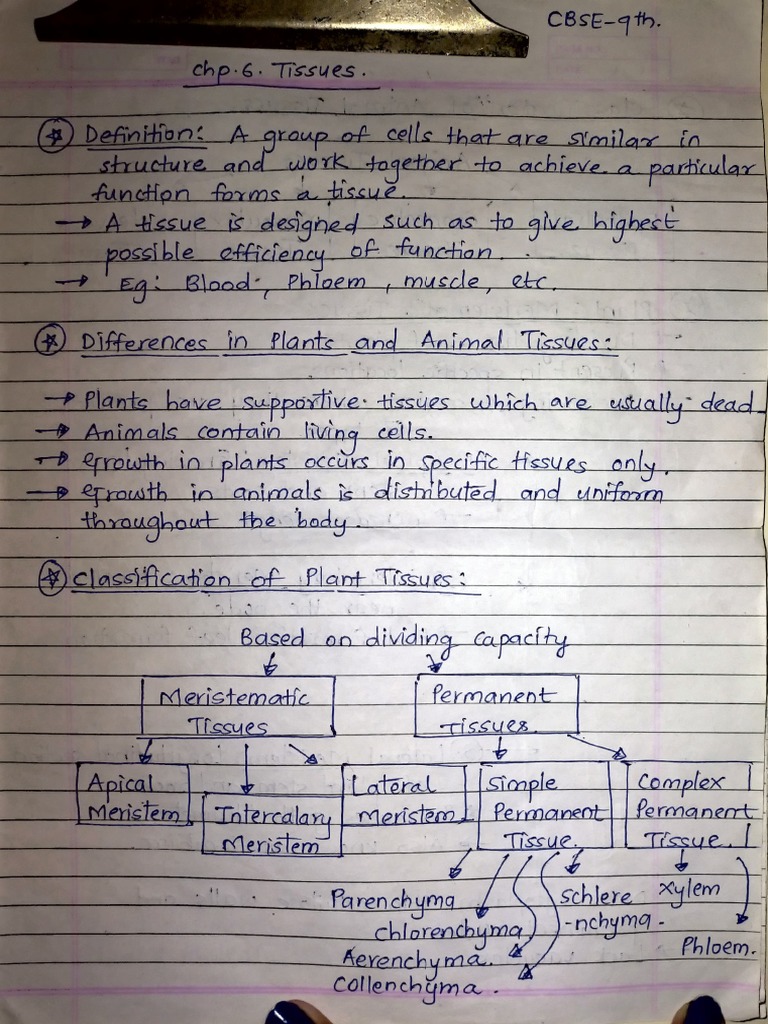 CBSE-9th.
Chp.6. Tissues.
Definition: A group of cells that are similar in
structure and work together to achieve a particular
function forms a tissue.
→ A tissue is designed such as to give highest
possible efficiency of function.
→ Eg: Blood, Phloem, muscle, etc.
Differences in Plants and Animal Tissues:
→ Plants have supportive tissues which are usually dead.
→ Animals contain living cells.
→ Growth in plants occurs in specific tissues only.
→ Growth in animals is distributed and uniform
throughout the body.
Classification of Plant Tissues:
Based on dividing capacity
Meristematic
Tissues
Permanent
Tissues.
Apical
Meristem
Intercalary
Meristem
Lateral
Meristem
Simple
Permanent
Tissue.
Complex
Permanent
Tissue.
Parenchyma
chlorenchyma
Aerenchyma.
Collenchyma.
Schlere
-nchyma.
xylem
Phloem.